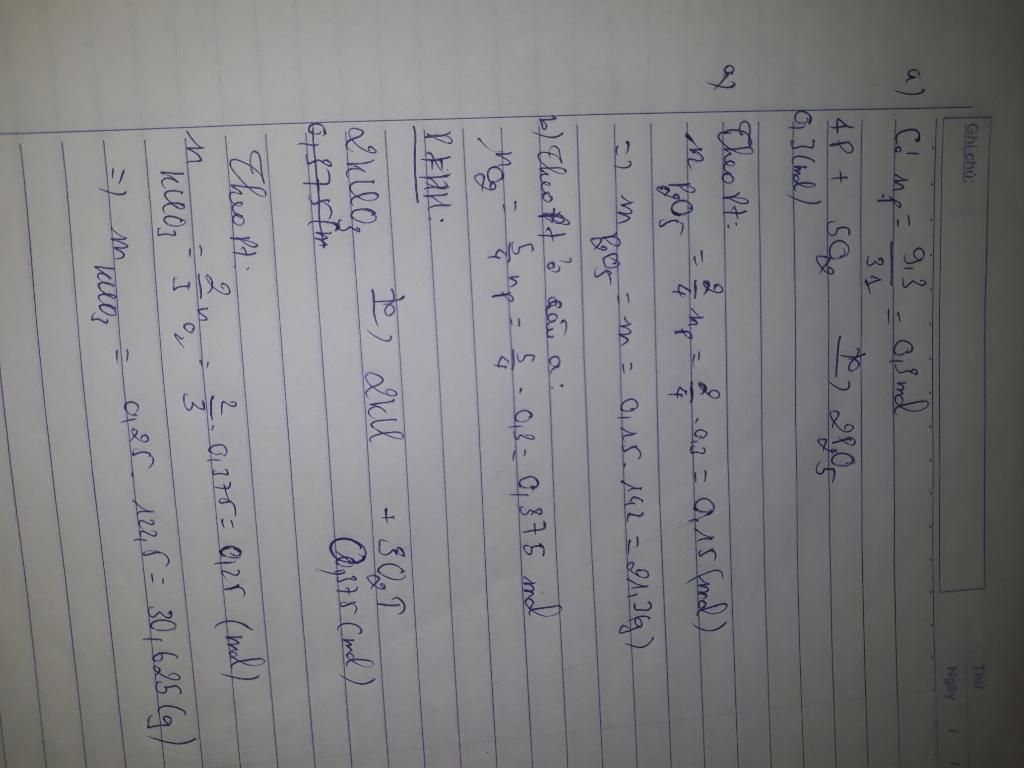 Ghi chú:
Thứ
Ngày / /
a) Có n_P = 9,3/31 = 0,3 mol
4P + 5O₂ t° → 2P₂O₅
0,3 (mol)
a) Theo Pt:
n P₂O₅ = 2/4 n_P = 2/4 . 0,3 = 0,15 (mol)
=> m P₂O₅ = n = 0,15 . 142 = 21,3(g)
b) Theo Pt ở câu a:
n O₂ = 5/4 n_P = 5/4 . 0,3 = 0,375 mol
PTHH:
2KClO₃ t° → 2KCl + 3O₂↑
0,375 (mol)
Theo Pt:
n KClO₃ = 2/3 n O₂ = 2/3 . 0,375 = 0,25 (mol)
=> m KClO₃ = 0,25 . 122,5 = 30,625 (g)